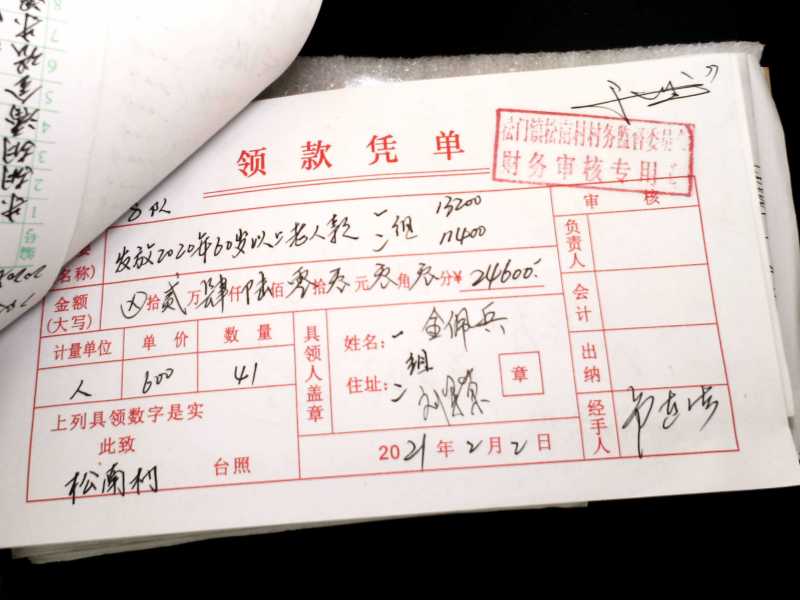 领款凭单
法门镇松南村村务监督委员会
财务审核专用章
审 核
名称) 发放2020年60岁以上老人款 一 组 13200
二 11400
金额
(大写) 拾贰万肆仟陆佰零拾零元零角零分¥ 24600.
计量单位 单 价 数 量
人 600 41
上列具领数字是实
此致
松南村 台照
具领人盖章
姓名: 一 金佩兵
组
住址: 二 刘
章
2021年2月2日
负责人
会计
出纳
经手人
8
7
6
5
4
3
2
1
编号